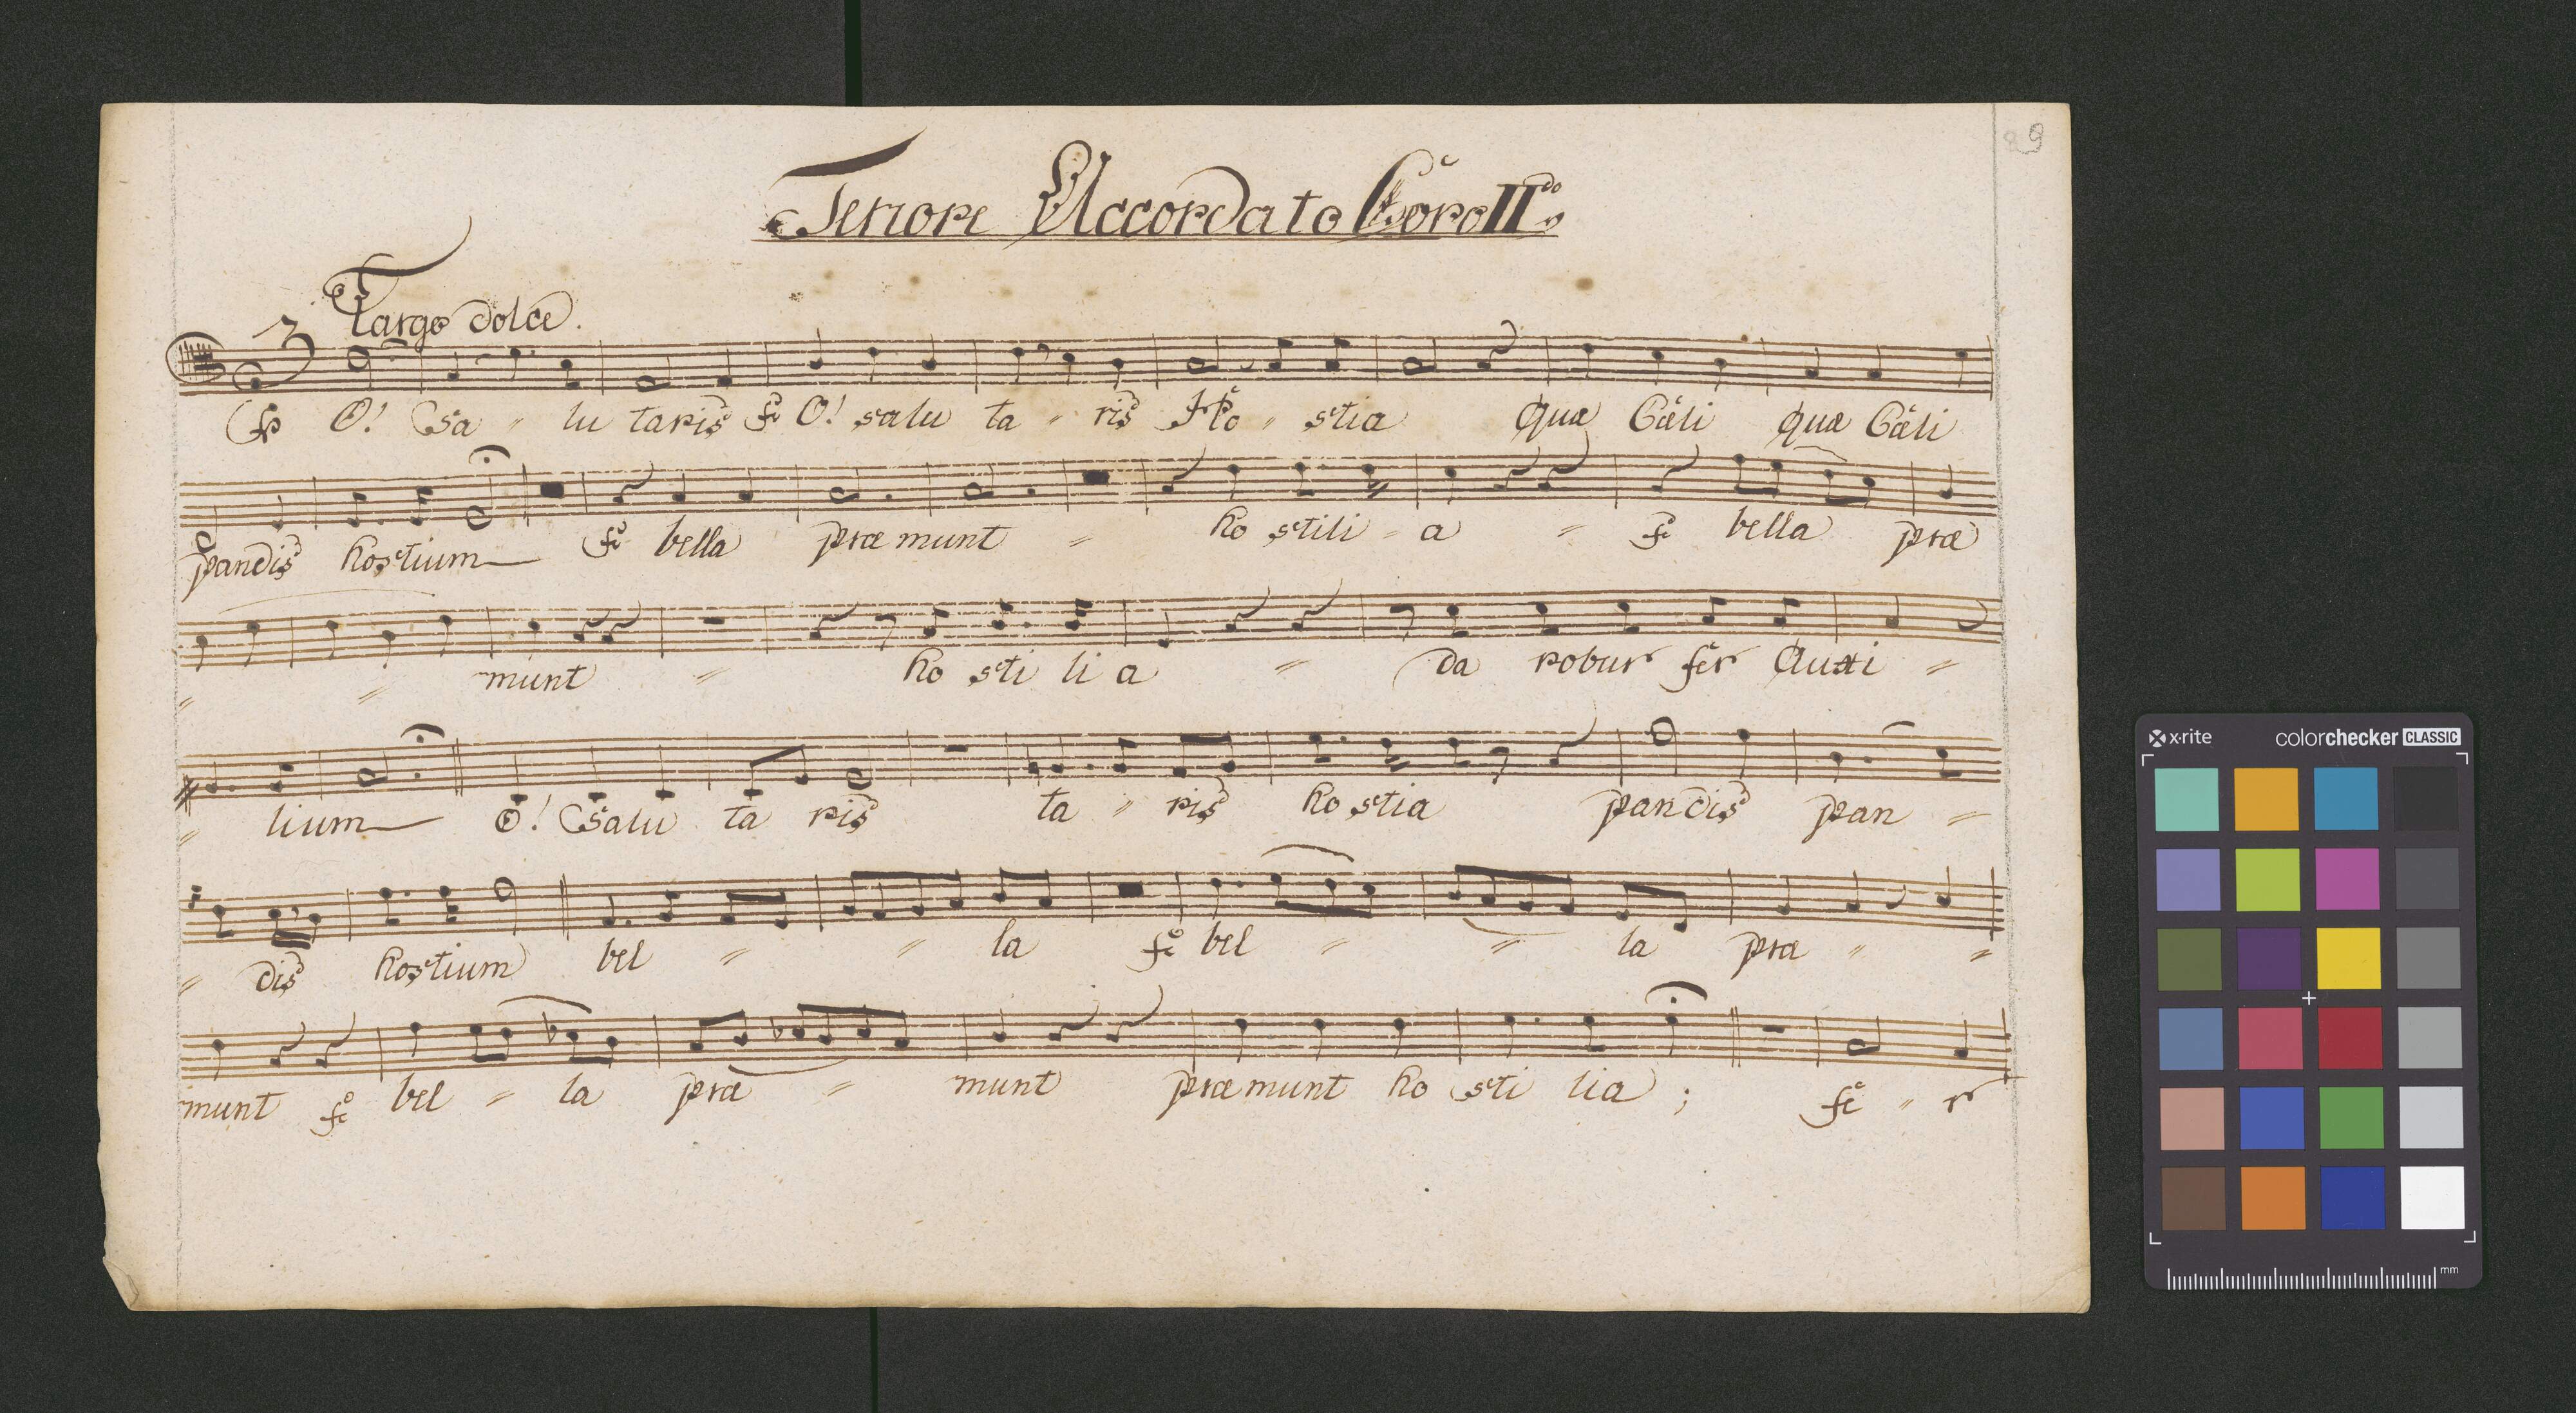 29
Tenore Accordato Coro IIdo
Largo dolce.
3
p O! Sa - lu taris f O! salu ta - ris Ho - stia quæ Cæli quæ Cæli
pandis hostium f bella præmunt = ho stili - a = f bella præ
= = munt = ho sti li a = da robur fer Auxi =
= lium O! Salu ta ris ta - ris ho stia pandis pan =
= dis hostium bel = = la f bel = = la præ = =
munt f bel = la præ = munt præmunt ho sti lia ; fe = r
x·rite colorchecker CLASSIC
mm